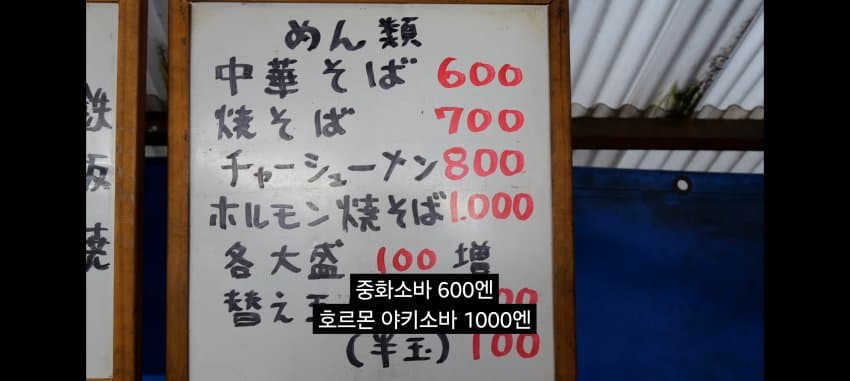 めん類
中華そば 600
焼そば 700
チャーシューメン 800
ホルモン焼そば 1.000
各大盛 100 増
替え玉
(半玉) 100
鉄
板
焼
중화소바 600엔
호르몬 야키소바 1000엔